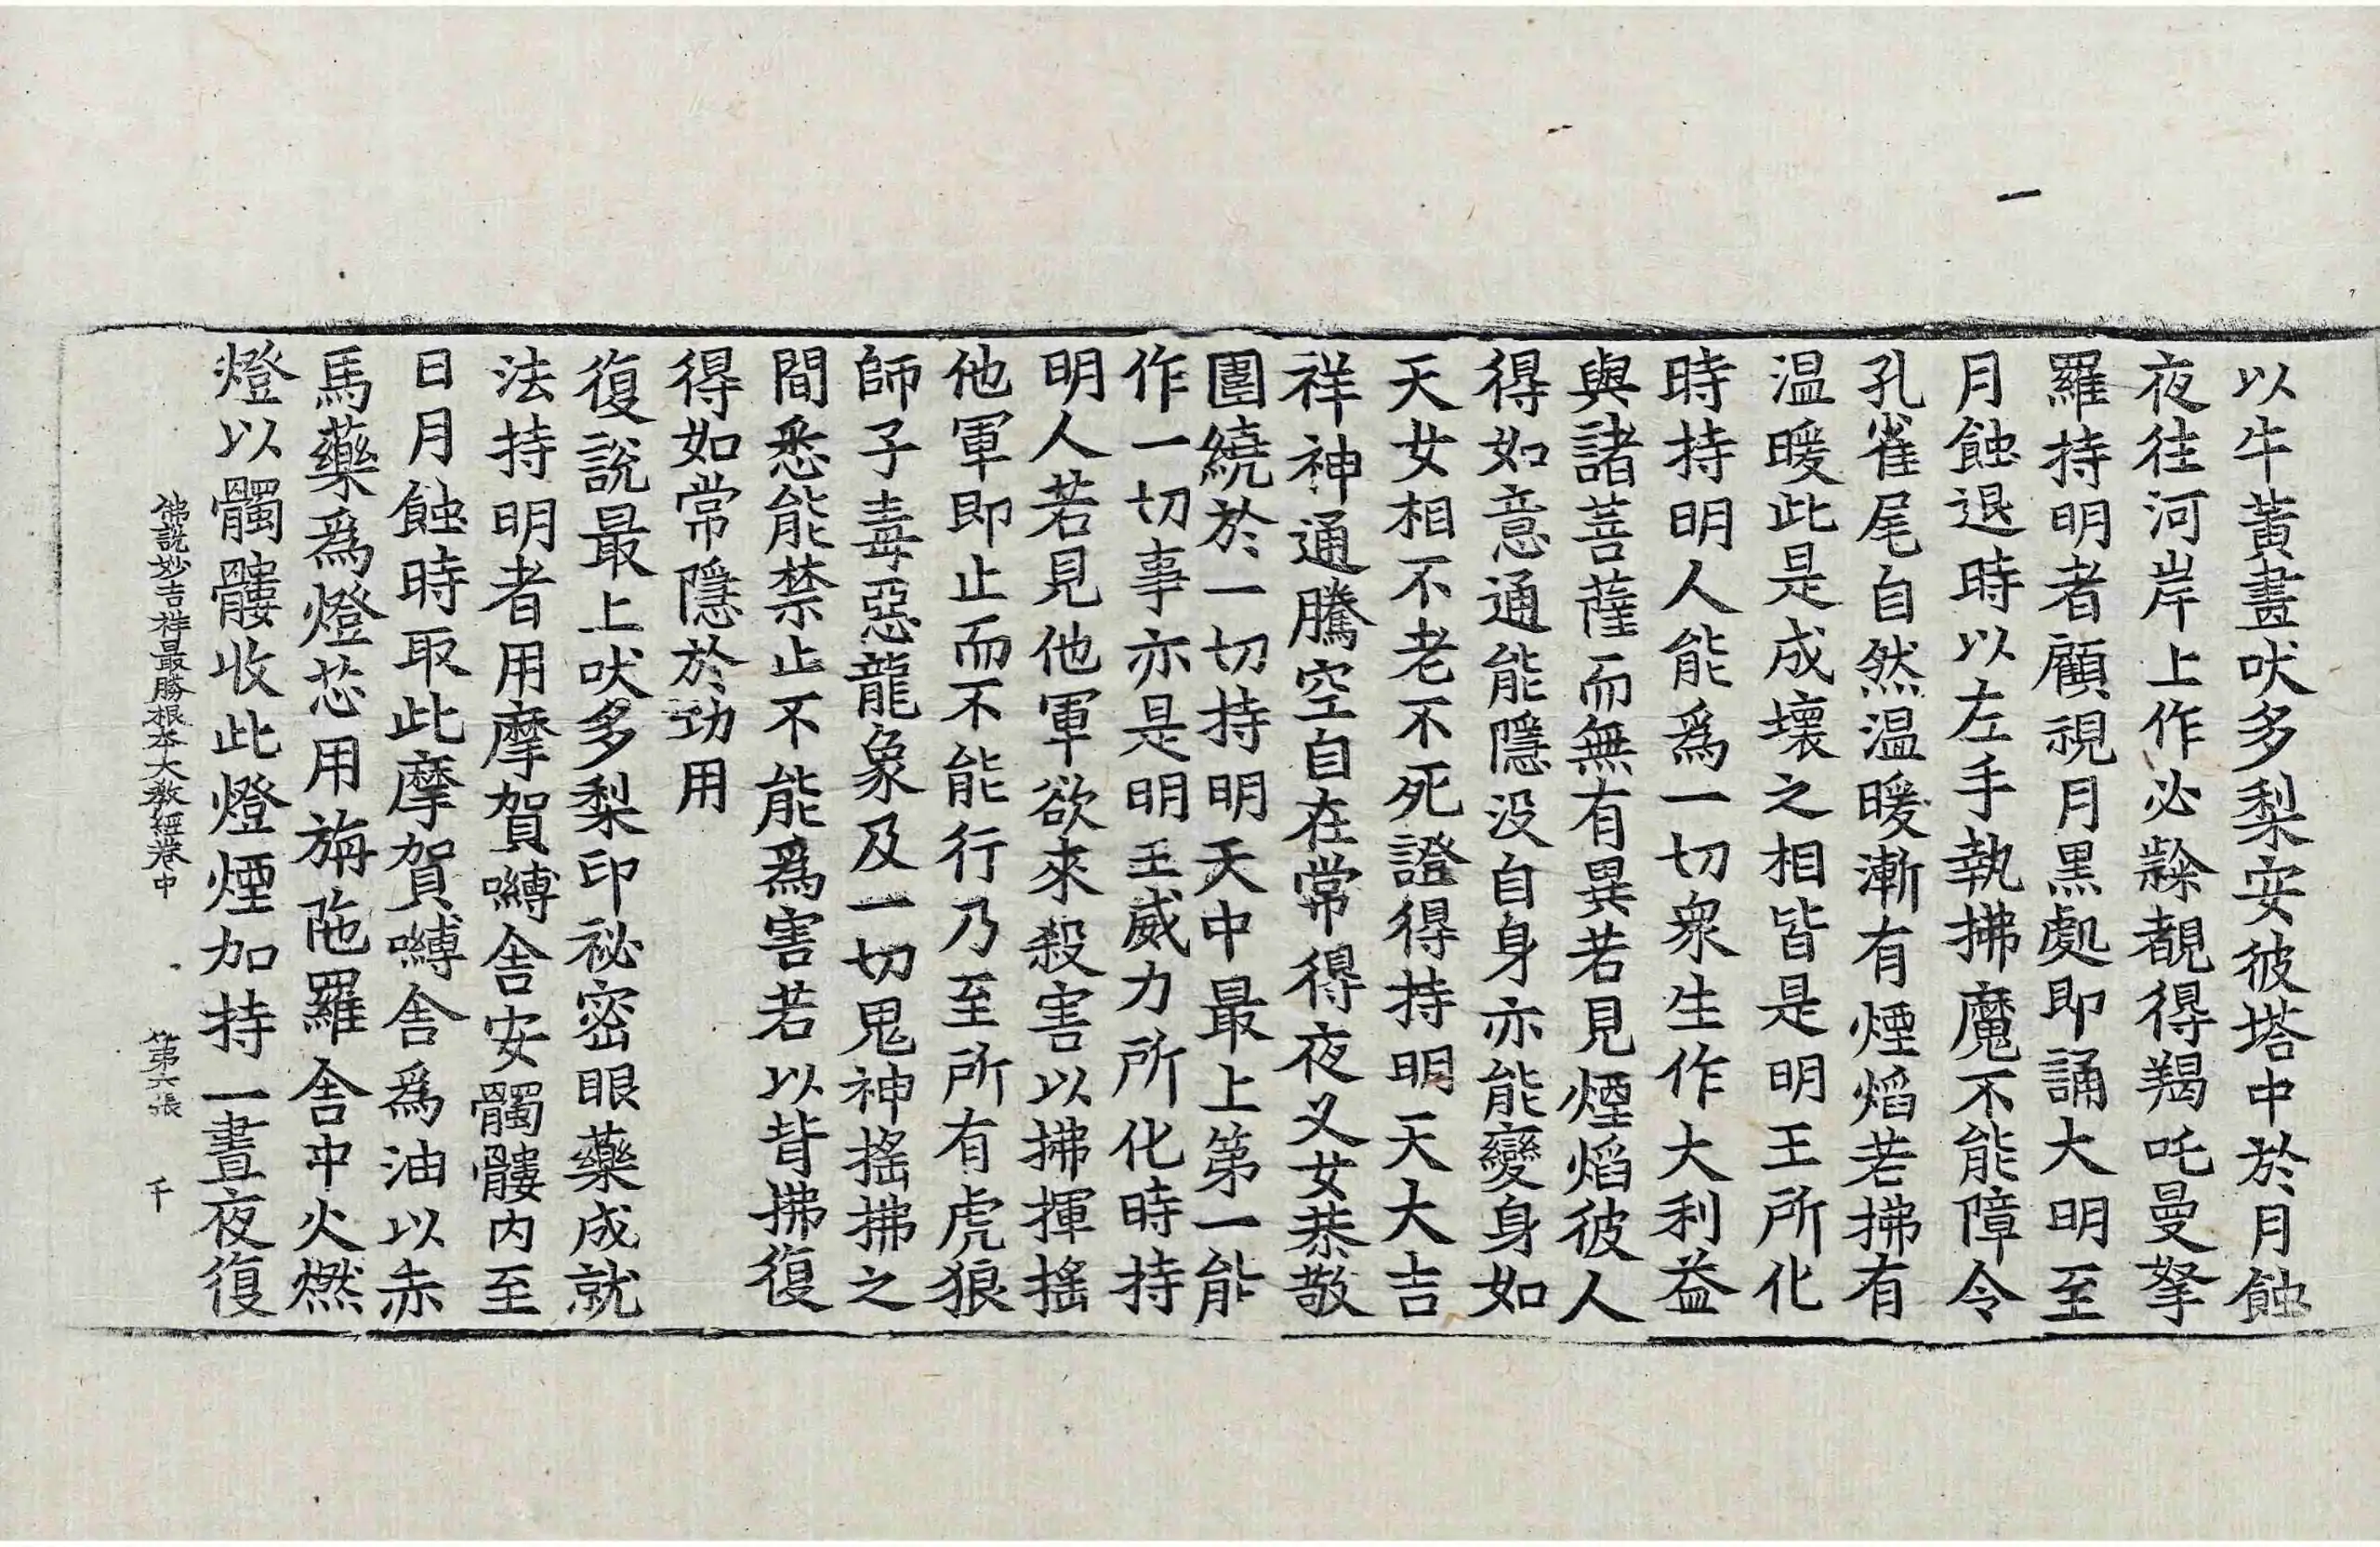 以牛黃畫吠多梨安彼塔中於月蝕
夜往河岸上作必𣩠覩得羯吒曼拏
羅持明者顧視月黑處即誦大明至
月蝕退時以左手執拂魔不能障令
孔雀尾自然温暖漸有煙焰若拂有
温暖此是成壞之相皆是明王所化
時持明人能爲一切衆生作大利益
與諸菩薩而無有異若見煙焰彼人
得如意通能隱没自身亦能變身如
天女相不老不死證得持明天大吉
祥神通騰空自在常得夜叉女恭敬
圍繞於一切持明天中最上第一能
作一切事亦是明王威力所化時持
明人若見他軍欲來殺害以拂揮搖
他軍即止而不能行乃至所有虎狼
師子毒惡龍象及一切鬼神搖拂之
間悉能禁止不能爲害若以背拂復
得如常隱於功用
復說最上吠多梨印祕密眼藥成就
法持明者用摩賀嚩舍安髑髏内至
日月蝕時取此摩賀嚩舍爲油以赤
馬藥爲燈芯用旃陁羅舍中火燃
燈以髑髏收此燈煙加持一晝夜復
佛說妙吉祥最勝根本大教經卷中 第六張 千